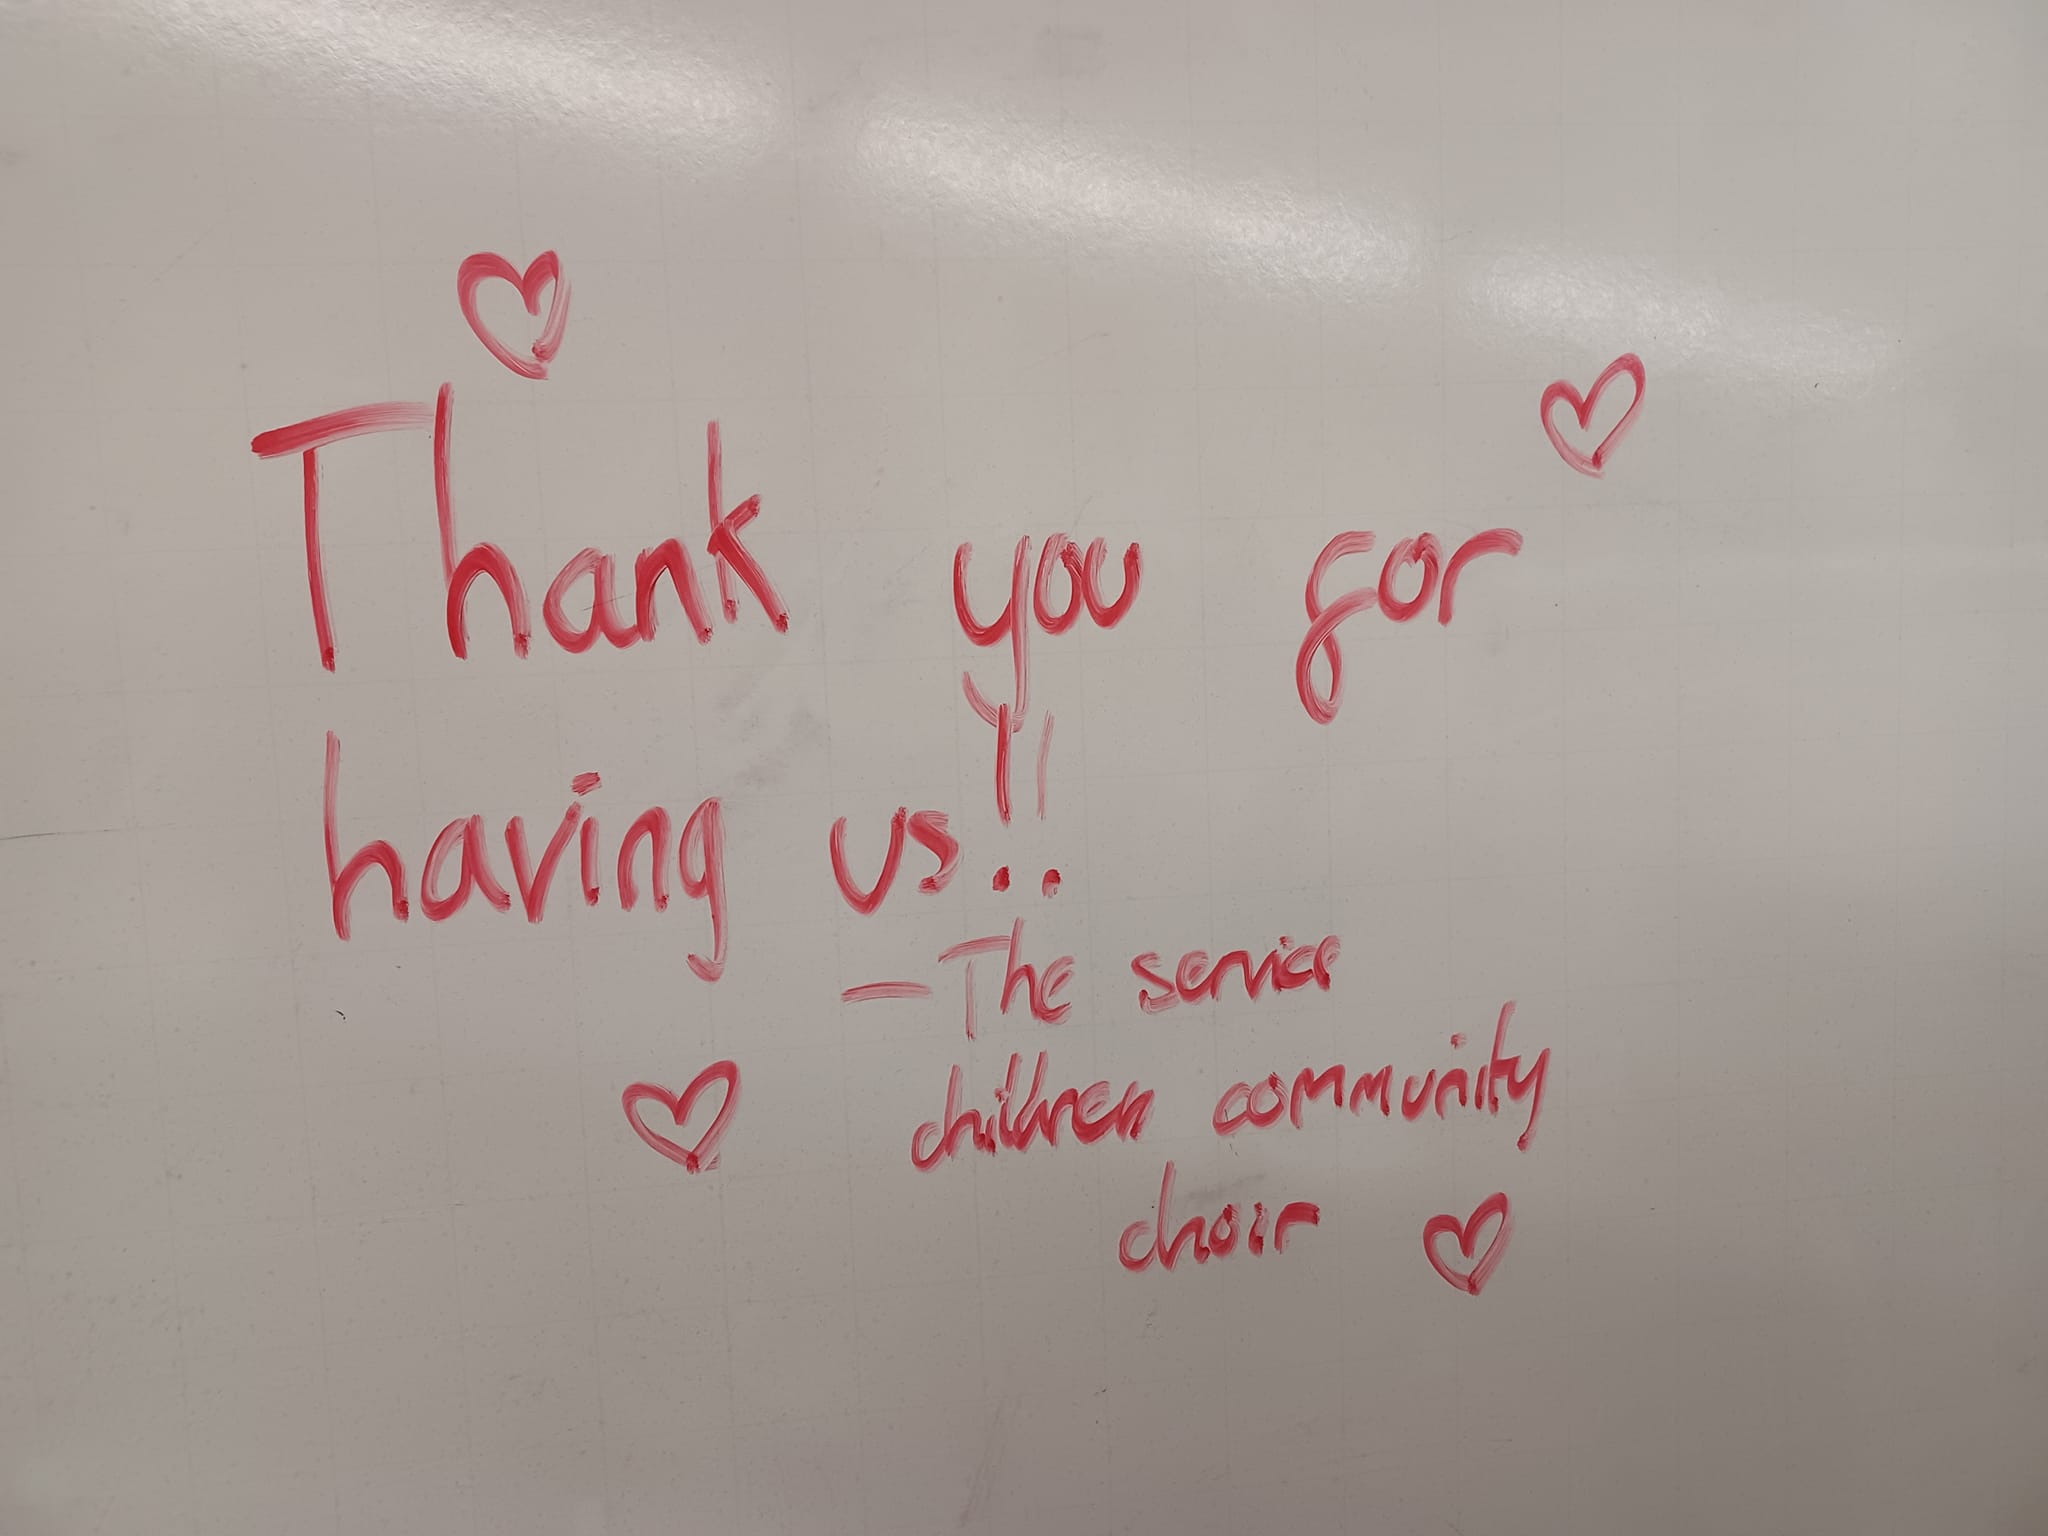 Thank you for
having us!!
- The service
children community
choir